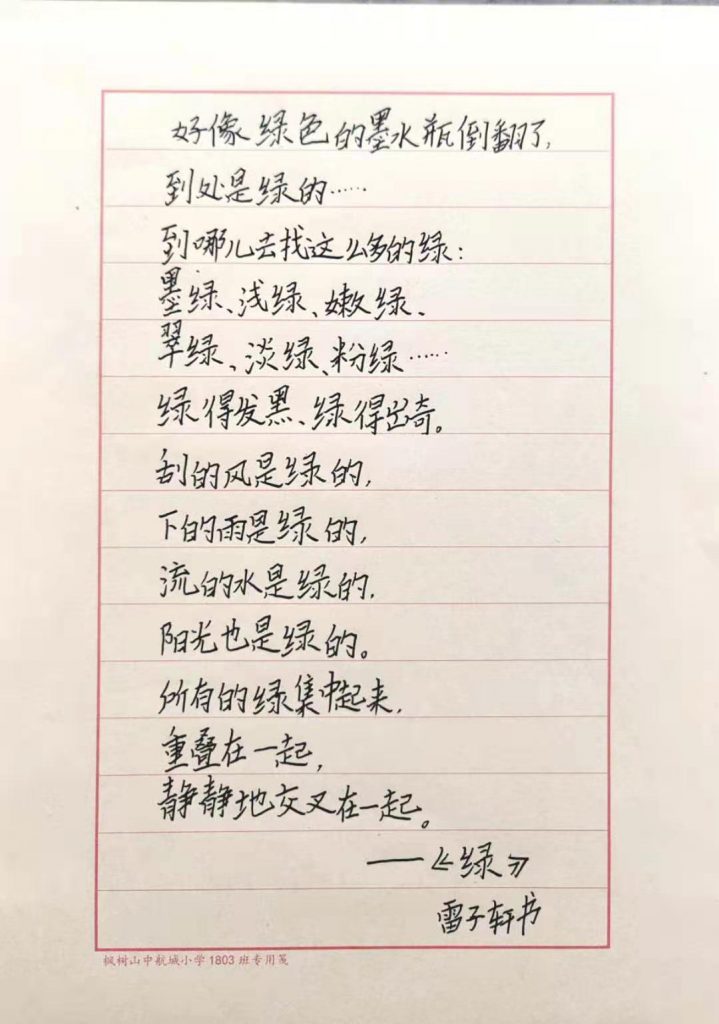 好像绿色的墨水瓶倒翻了,
到处是绿的……
到哪儿去找这么多的绿:
墨绿、浅绿、嫩绿、
翠绿、淡绿、粉绿……
绿得发黑、绿得出奇。
刮的风是绿的,
下的雨是绿的,
流的水是绿的,
阳光也是绿的。
所有的绿集中起来,
重叠在一起,
静静地交叉在一起。
——《绿》
雷子轩书
枫树山中航城小学1803班专用笺